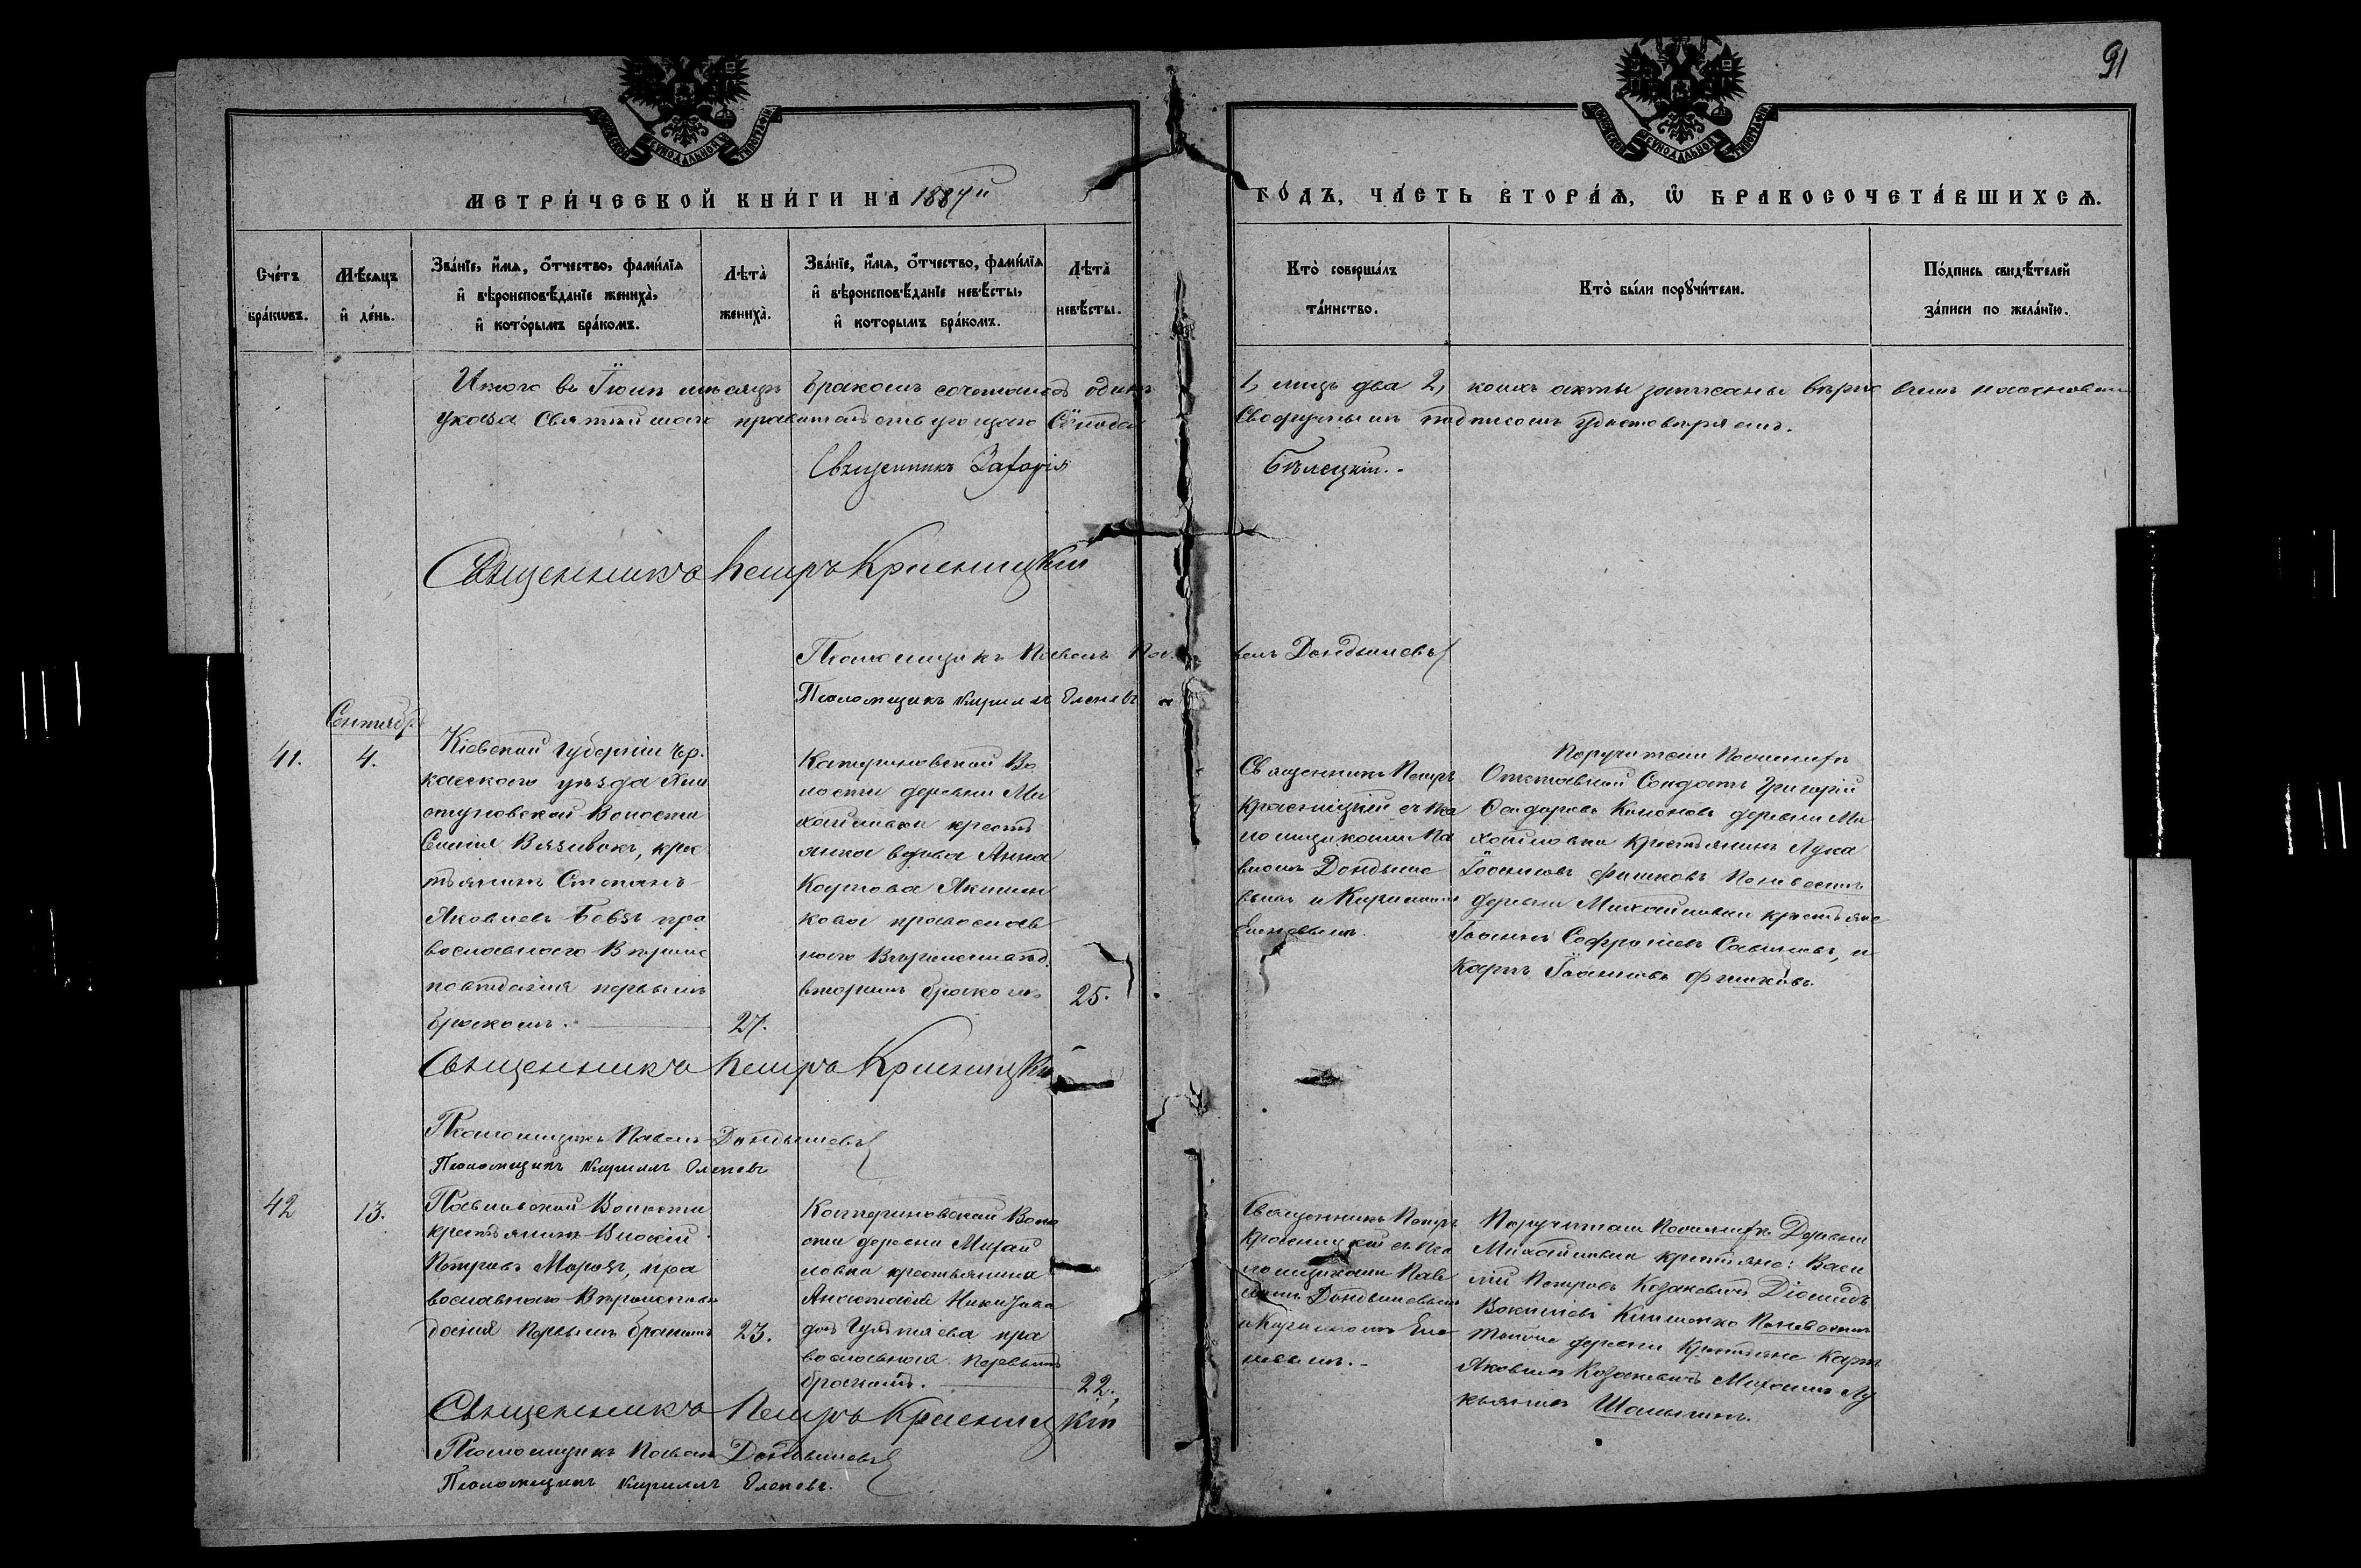 91
МЕТРИ́ЧЕСКОЙ КНИ́ГИ НА 1887й
ГО́ДЪ, ЧА́СТЬ ВТОРА́Я, Ѿ БРАКОСОЧЕТА́ВШИХСЯ.
Сче́тъ бра́ковъ.
Мѣ́сяцъ и҆ де́нь.
Зва́нїе, и҆́мя, ѻ҆́тчество, фами́лїя
и҆ вѣроисповѣ́данїе жениха̀,
и҆ кото́рымъ бра́комъ.
Лѣта̀
жениха̀.
Зва́нїе, и҆́мя, ѻ҆́тчество, фами́лїя
и҆ вѣроисповѣ́данїе невѣ́сты,
и҆ которымъ бра́комъ.
Лѣта̀
невѣ́сты.
Кто̀ соверша́лъ
та́инство.
Кто̀ бы́ли порꙋчи́тели.
По́дпись свидѣ́телей
за́писи по жела́нїю.
Итого въ мѣсяцѣ бракомъ одинъ 1, лицъ два 2, коихъ акты записаны вѣрно
указа Святѣйшаго правительствующаго Сѵнода подписомъ удостовѣряемъ.
Священникъ Бѣлецкій.
Священникъ Петръ Красницкій
Псаломщикъ Павелъ Дондышевъ
Псаломщикъ Кириллъ Еленевъ
Сентябр.
41.
4.
Кіевской губерніи Чер
касскаго уѣзда
Волости
Вязивокъ, крес
тьянинъ Степанъ
Яковлевъ пра
вославнаго Вѣроис
повѣданія первымъ
бракомъ.
27.
Катериновской Во
лости деревни Ми
хайловки кресть
янка вдова Анна
Карпова
православ
наго Вѣроисповѣд.
вторымъ бракомъ
25.
Священникъ Петръ
Красницкій съ Пса
ломщиками Па
вломъ Дондыше
вымъ и Кирилломъ
Еленевымъ.
Поручители По женихѣ
Отставной Солдатъ Григорій
деревни Ми
хайловки Крестьянинъ Лука
Іоанновъ Фишковъ По невѣстѣ
деревни Михайловки крестьяне
Іоаннъ Софроніевъ и
Карпъ Іоанновъ Фишковъ.
Священникъ Петръ Красницкій
Псаломщикъ Павелъ Дондышевъ
Псаломщикъ Кириллъ Еленевъ
42
13.
Павловской Волости
крестьянинъ
Петровъ Морозъ, пра
вославнаго Вѣроисповѣ
данія Первымъ бракомъ
23.
Катериновской Воло
сти деревни Михай
ловки крестьянина
Анастасія Никифоро
ва пра
вославная Первымъ
бракомъ.
22.
Священникъ Петръ
Красницкій съ Пса
ломщиками Пав
ломъ Дондышевымъ
и Кирилломъ Еле
невымъ.
Поручители По женихѣ Деревни
Михайловки крестьяне: Васи
лій Петровъ Козакевичъ Діомидъ
По невѣстѣ
деревни Крестьяне Карпъ
Яковлевъ Козакевичъ Михаилъ Лу
кьяновъ
Священникъ Петръ Красницкій
Псаломщикъ Павелъ Дондышевъ
Псаломщикъ Кириллъ Еленевъ.